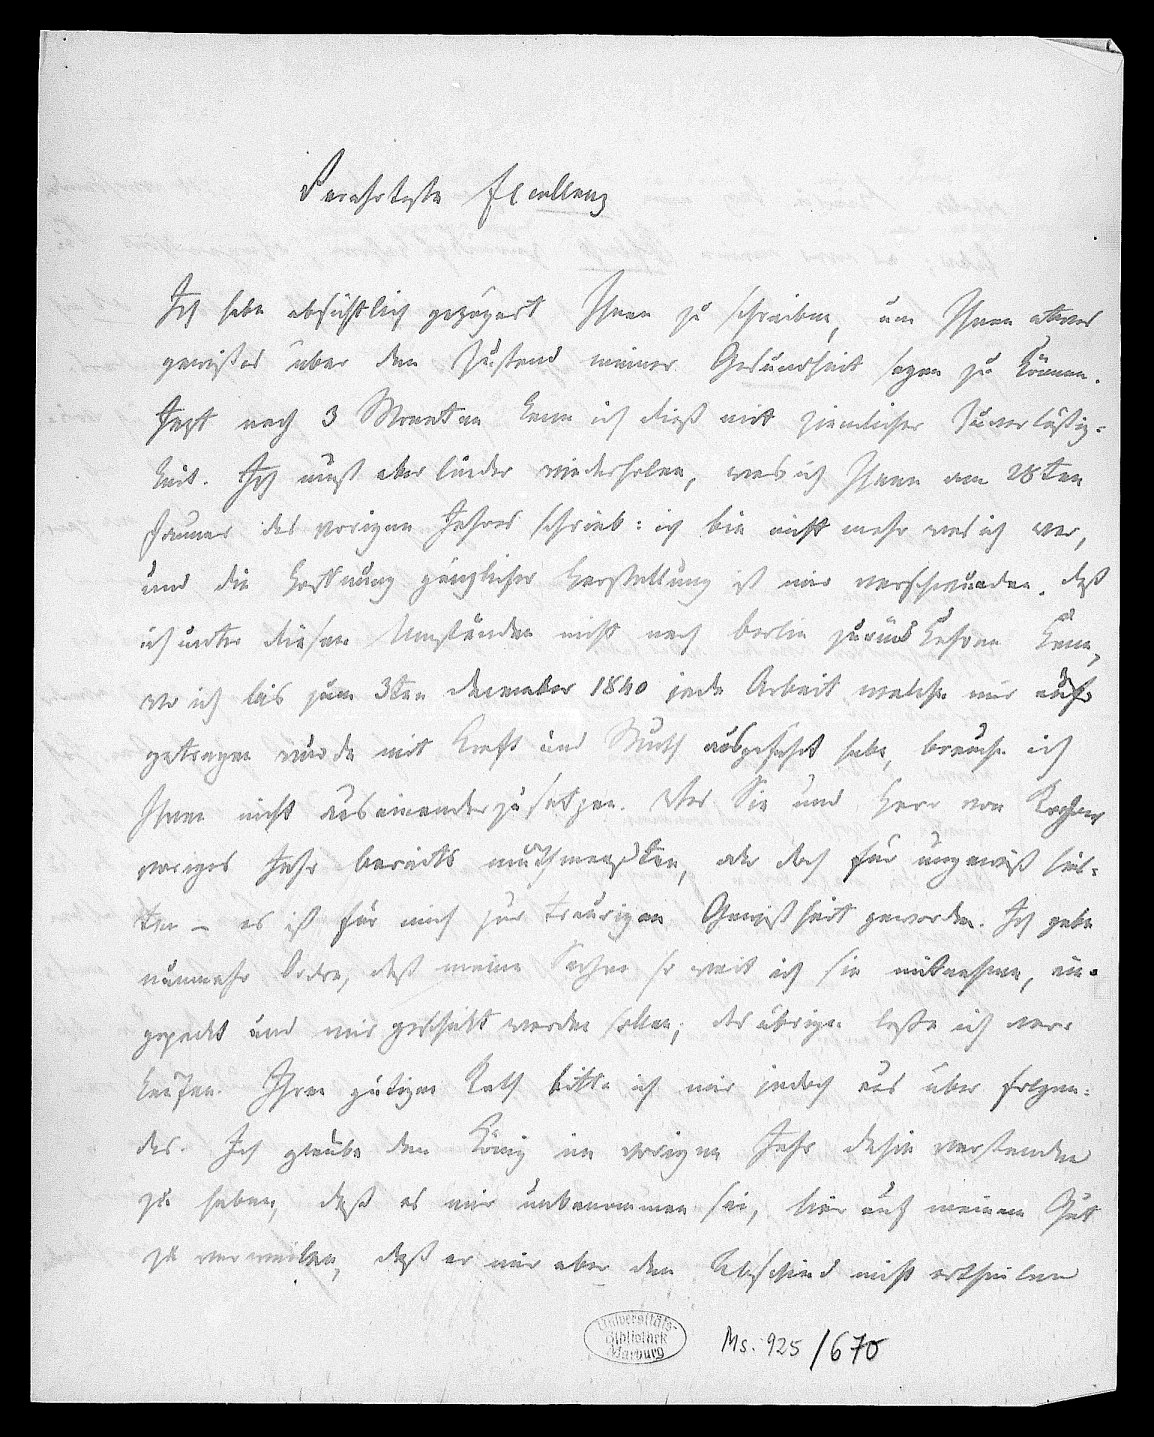 Verehrteste Excellenz
Ich habe absichtlich gezögert Ihnen zu schreiben, um Ihnen etwas
gewißes über den Zustand meiner Gesundheit sagen zu können.
Jezt nach 3 Monaten kann ich dieß mit ziemlicher Zuverläßig-
keit. Ich muß aber leider wiederholen, was ich Ihnen am 28ten
Januar des vorigen Jahres schrieb: ich bin nicht mehr was ich war,
und die Hoffnung gänzlicher Herstellung ist mir verschwunden. Daß
ich unter diesen Umständen nicht nach Berlin zurück kehren kann,
wo ich bis zum 3ten December 1840 jede Arbeit, welche mir auf-
getragen wurde mit Kraft und Muth ausgeführt habe, brauche ich
Ihnen nicht auseinanderzusetzen. Was Sie und Herr von Rochow
voriges Jahr bereits muthmaaßten, oder doch für ungewiß hiel-
ten – es ist für mich zur traurigen Gewißheit geworden. Ich gebe
nunmehr Ordre, daß meine Sachen so weit ich sie mitnehme, ein-
gepackt und mir geschickt werden sollen; das übrige lasse ich ver-
kaufen. Ihren gütigen Rath bitte ich mir jedoch aus über folgen-
des. Ich glaube den König im vorigen Jahr dahin verstanden
zu haben, daß es mir unbenommen sei, hier auf meinem Gut
zu verweilen, daß er mir aber den Abschied nicht ertheilen
Universitäts-
Bibliothek
Marburg
Ms. 925/670